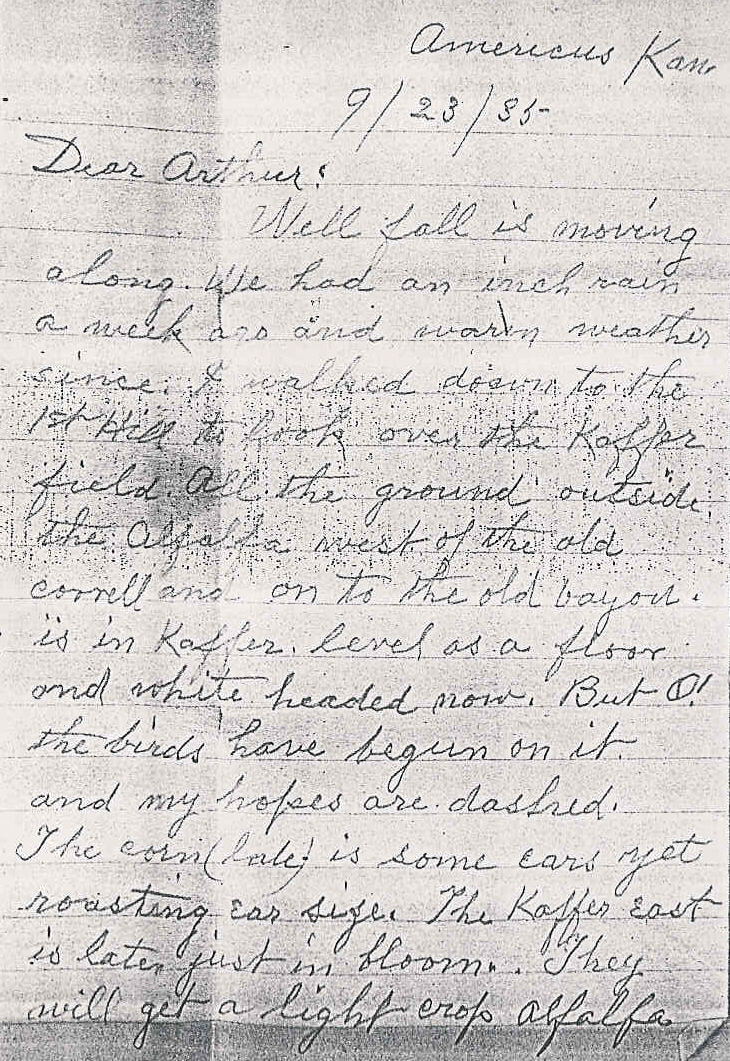 Americus Kan.
9/23/35
Dear Arthur:
Well fall is moving
along. We had an inch rain
a week ago and warm weather
since. I walked down to the
1st Hill to look over the Kaffer
field. All the ground outside
the Alfalfa west of the old
correll and on to the old bayou.
is in Kaffer. level as a floor
and white headed now. But O!
the birds have begun on it.
and my hopes are dashed.
The corn (late) is some ears yet
roasting ear size. The Kaffer east
is later just in bloom. They
will get a light crop alfalfa